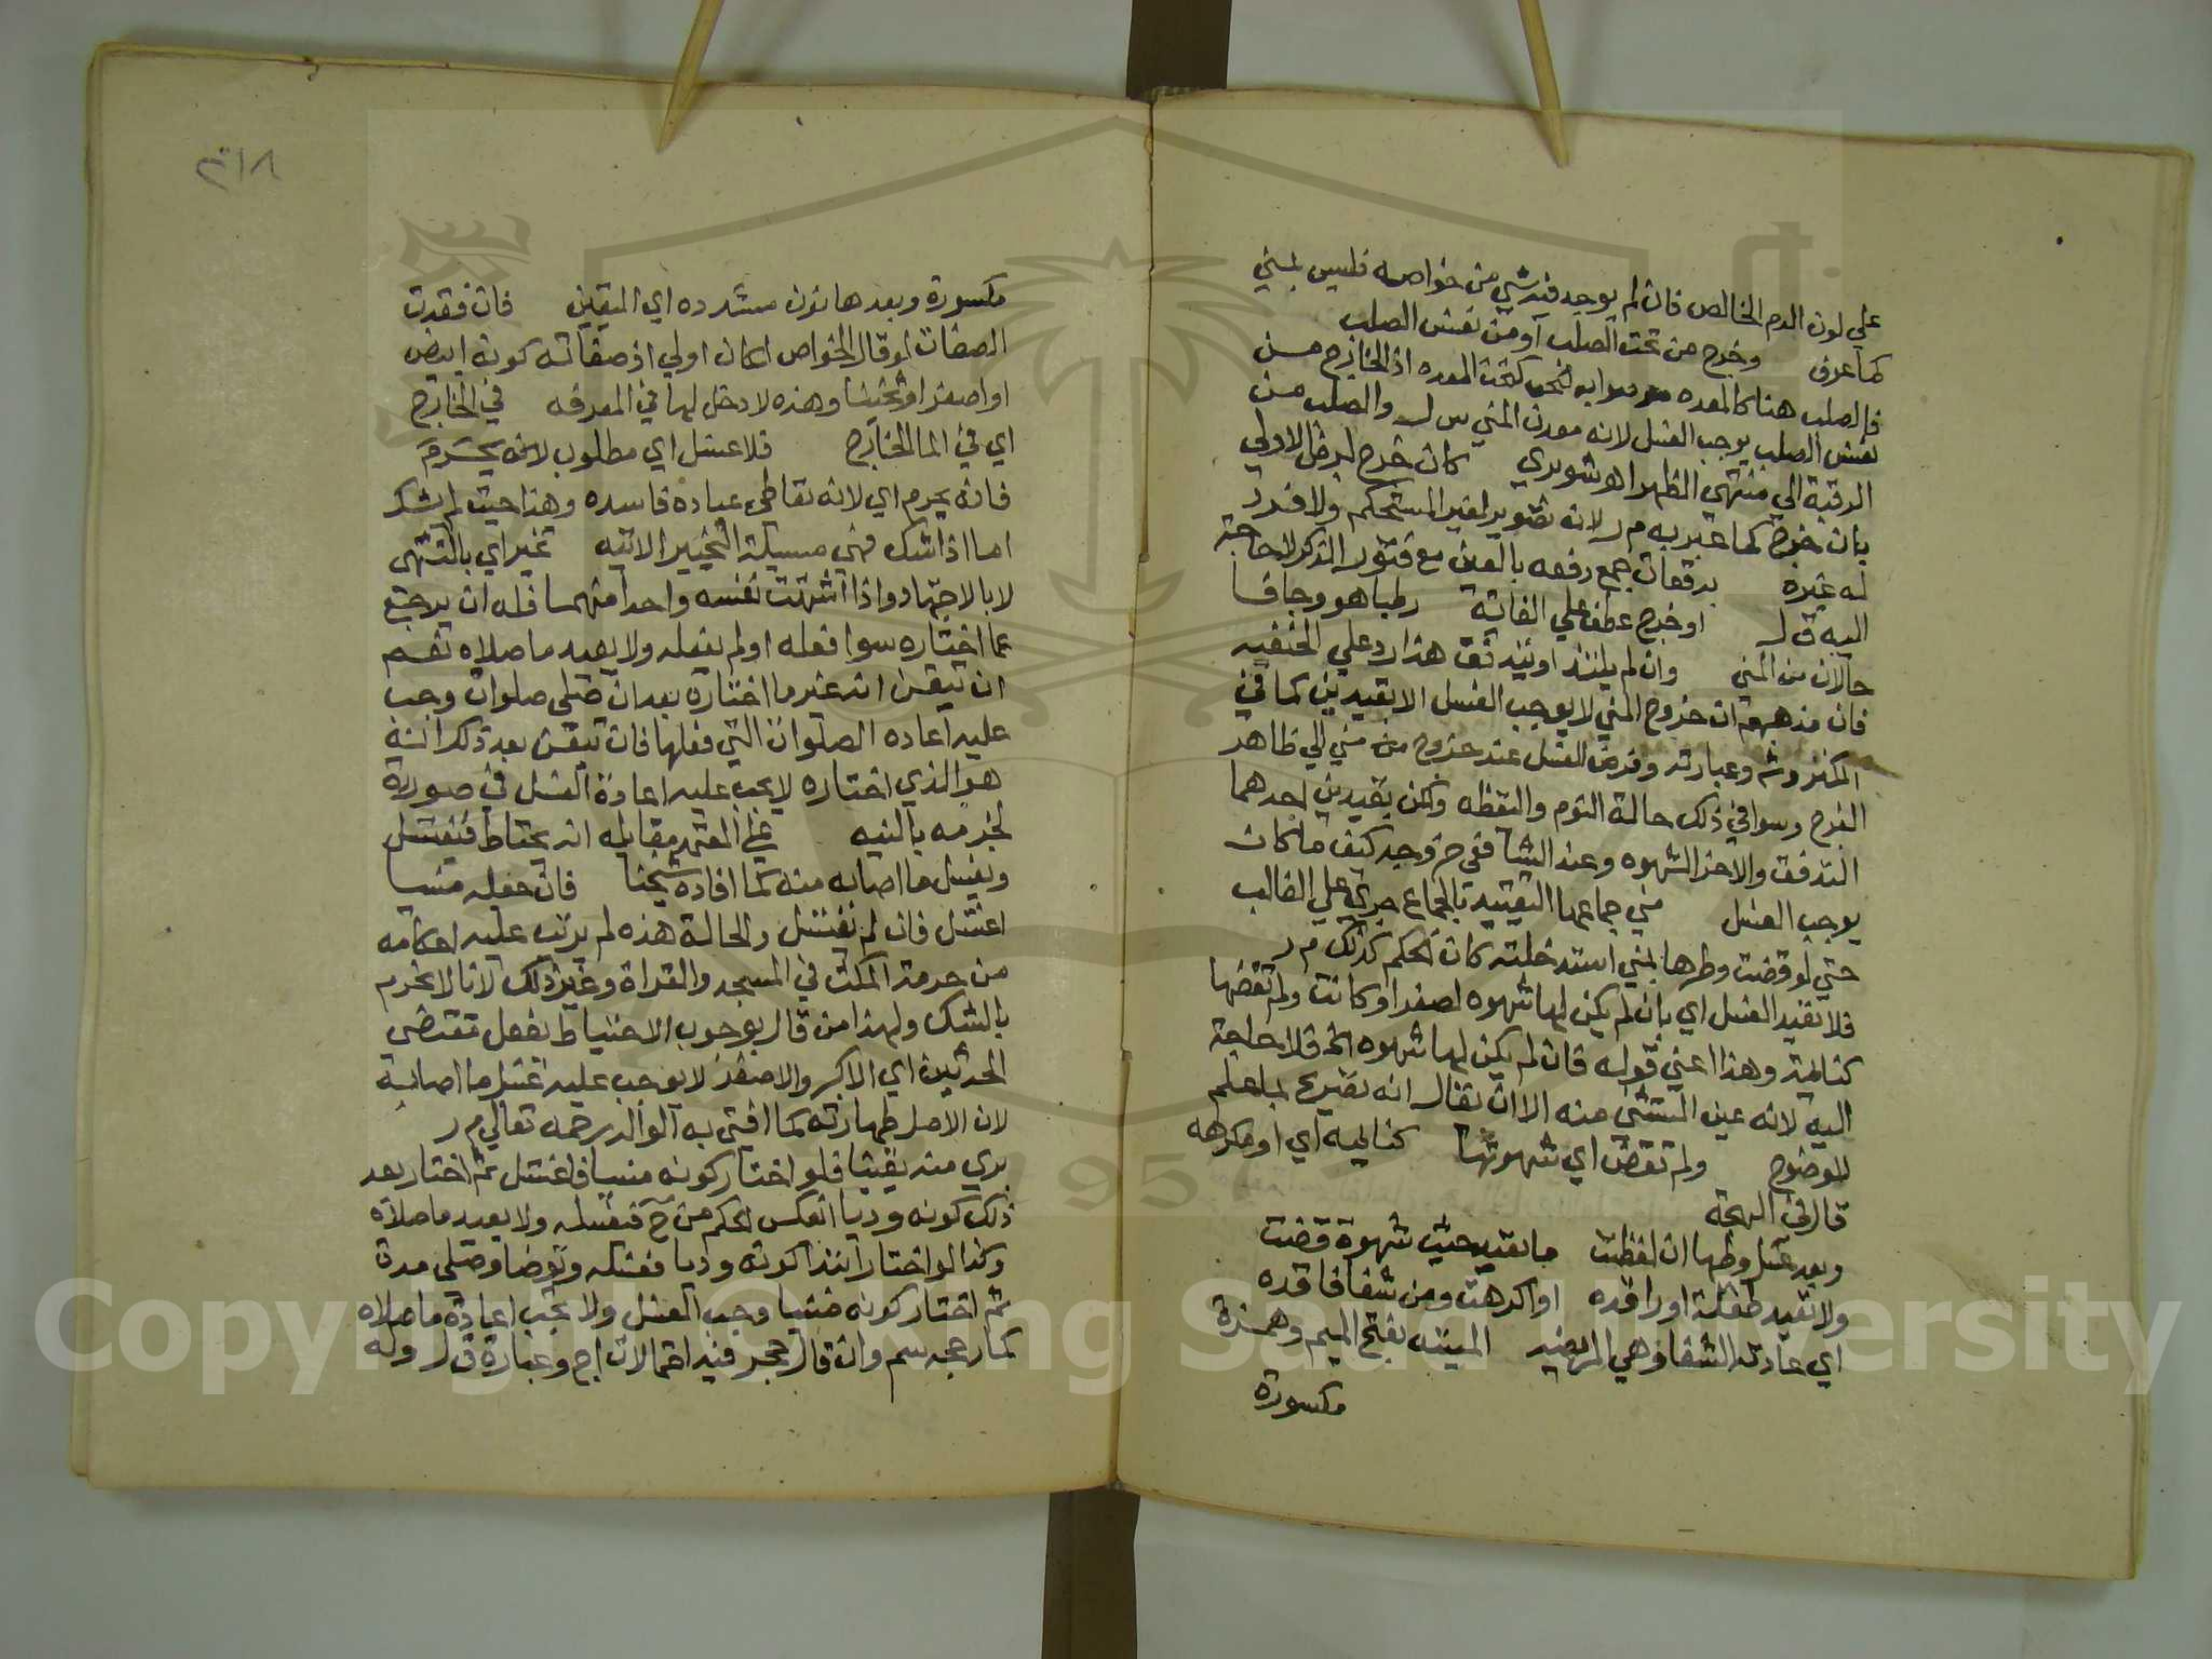 علي لون الدم الخالص فان لم يوجد فيه شي من خواصه فليس بمني
كما عرف وخرج من تحت الصلب او من نفس الصلب
فالصلب هنا كالمعده صوابه كتحت المعده اذ الخارج من
نفس الصلب يوجب الغسل لانه معدن المني س ل والصلب من
الرقبة الي منتهي الظهر اه شوبري كان خرج لمرض الاولي
بان خرج كما عبر به م ر لانه تصوير لغير المستحكم ولا فرد
له غيره بدفعات جمع دفعه بالعين مع فتور الذكر لا حاجة
اليه ق ل او خرج عطف علي الفاية رطبا هو وجافا
حالان من المني وان لم يلتذ او يتدفق هذا رد علي الحنفيه
فان مذهبهم ان خروج المني لا يوجب الغسل الا بقيدين كما في
الكنز وشه وعبارته وفرض الغسل عند خروج من مني الي ظاهر
الفرج وسوا في ذلك حالة النوم واليقظه ولكن بقيدين احدهما
التدفق والاخر الشهوه وعند الشافعي ح وجد كيف ما كان
يوجب الغسل مني جماعها التقييد بالجماع جري علي الغالب
حتي لو قضت وطرها بمني استدخلته كان الحكم كذلك م ر
فلا تفيد الغسل اي بان لم يكن لها شهوه لصغر او كانت ولم تقضها
كنايمة وهذا اعني قوله فان لم يكن لها شهوه الخ فلا حاجة
اليه لانه عين المستثني منه الا ان يقال انه تصريح بما علم
للوضوح ولم تقض اي شهوتها كنايمه اي او مكرهه
قال في البهجة
وبعد غسل وطيها ان لفظت ما تعيد حيث شهوة قضت
ولا تعيد طفلة او راقده او اكرهت ومن شفا فاقده
اي عادته الشفا وهي المريضه الميئه بفتح الميم وهمزة
مكسورة
٢١٨
مكسورة وبعدها نون مشدده اي المتقين فان فقدت
الصفات لو قال الخواص لكان اولي اذ صفاته كونه ابيض
او اصفر او ثخينا وهذه لا دخل لها في المعرفه في الخارج
اي في الما الخارج فلا غسل اي مطلوب لانه يحرم
فانه يحرم اي لانه تعاطي عباده فاسده وهذا حيث لم يشك
اما اذا شك فهي مسيلة التخيير الاتيه تخير اي بالتشهي
لا بالاجتهاد واذا اشتهت نفسه واحدا منهما فله ان يرجع
عما اختاره سوا فعله او لم يفعله ولا يعيد ما صلاه نعم
ان تيقن انه غير ما اختاره بعد ان صلي صلوات وجب
عليه اعاده الصلوات التي فعلها فان تيقن بعد ذلك انه
هو الذي اختاره لا يجب عليه اعادة الغسل في صورة
لجزمه بالنيه علي المعتمد مقابله انه يحتاط فيغتسل
ويغسل ما اصابه منه كما افاده شيخنا فان جعله منيا
اغتسل فان لم يغتسل والحالة هذه لم يرتب عليه احكامه
من حرمة المكث في المسجد والقراة وغير ذلك لانا لا نحرم
بالشك ولهذا من قال بوجوب الاحتياط بفعل مقتضى
الحدثين اي الاكبر والاصغر لا يوجب عليه غسل ما اصابه
لان الاصل طهارته كما افتي به الوالد رحمه تعالي م ر
بري منه يقينا فلو اختار كونه منيا فاغتسل ثم اختار بعد
ذلك كونه وديا انعكس الحكم من ح فيغسله ولا يعيد ما صلاه
وكذا لو اختار ابتدا كونه وديا فغسله وتوضا وصلي مدة
ثم اختار كونه منيا وجب الغسل ولا تجب اعادة ما صلاه
كما رجحه سم وان قال حجر فيه احتمالان اج وعبارة ق ل وله
Copyright © King Saud University
1957